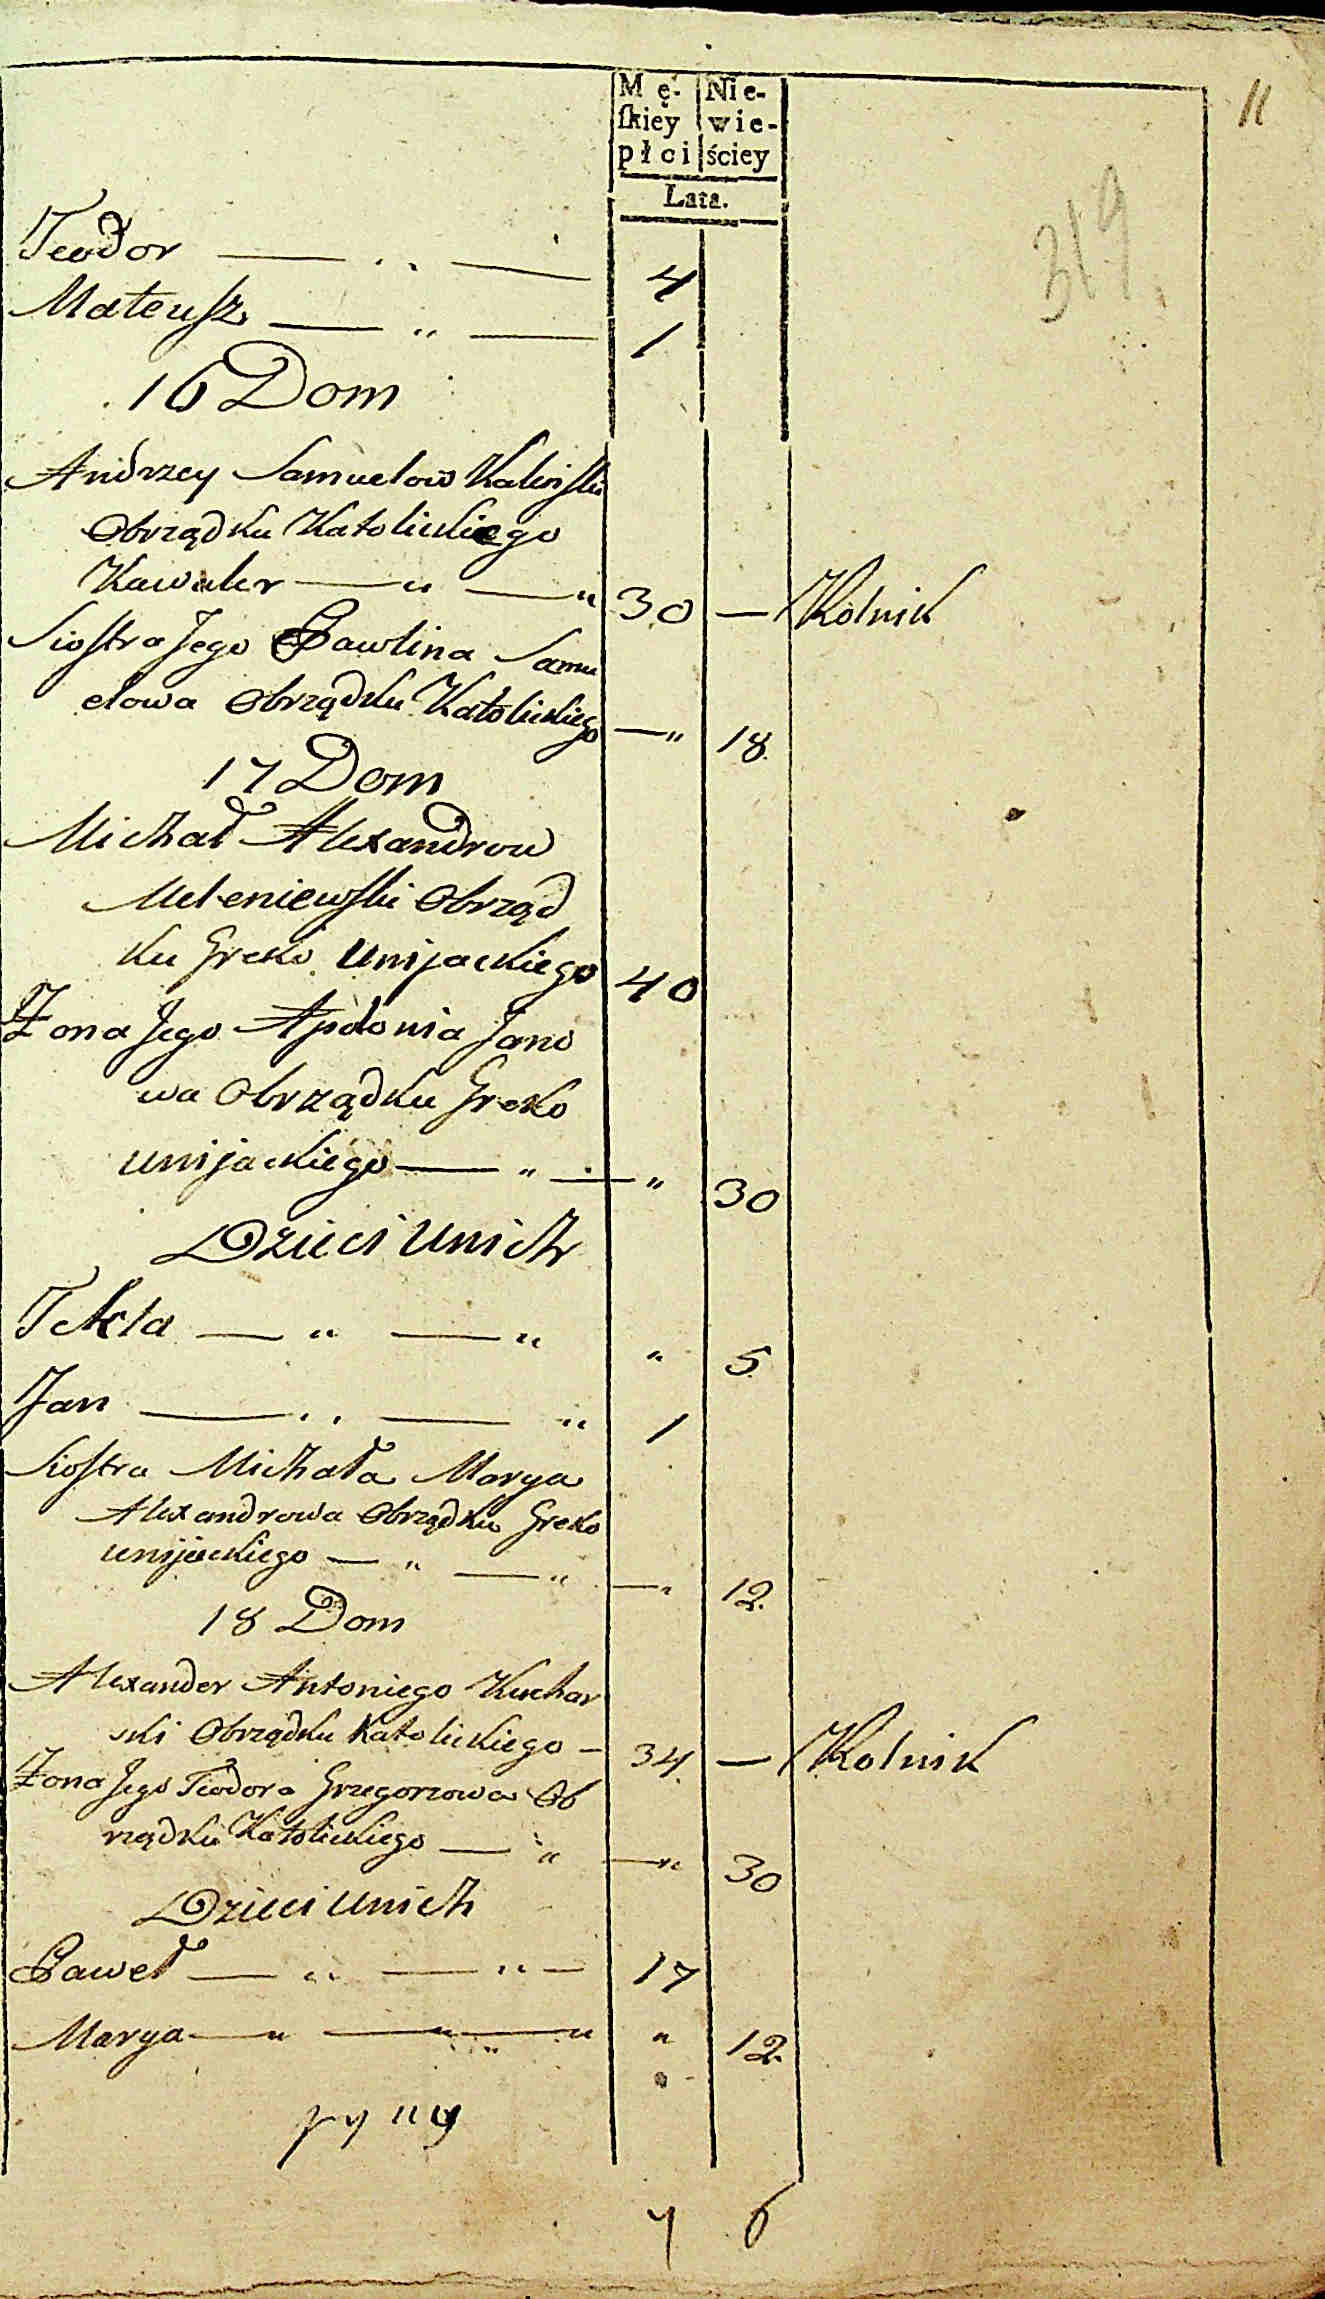 11
Mę- Nie-
skiey wie-
płci ściey
Lata.
319
Teodor — .. — 4
Mateusz — " — 1
16 Dom
Andrzey Samuelow Kalinski
Obrządku Katolickiego
Kawaler — " — " 30 — Rolnik
Siostra Jego Pawlina Samu
elowa Obrządku Katolickiego — " 18.
17 Dom
Michał Alexandrow
Meleniewski Obrząd
ku Greko Unijackiego 40
Żona Jego Apolonia Jano
wa Obrządku Greko
unijackiego — " — " 30
Dzieci unich
Tekla — " — " " 5.
Jan — .. — " 1
Siostra Michała Marya
Alexandrowa Obrządku Greko
unijackiego — " — " — " 12.
18 Dom
Alexander Antoniego Kuchar
ski Obrządku Katolickiego — 34. — Rolnik
Żona Jego Teodora Grzegorzowa Ob
rządku Katolickiego — " — " 30
Dzieci unich
Paweł — " — " — 17
Marya — " — " — " " 12.
7 6